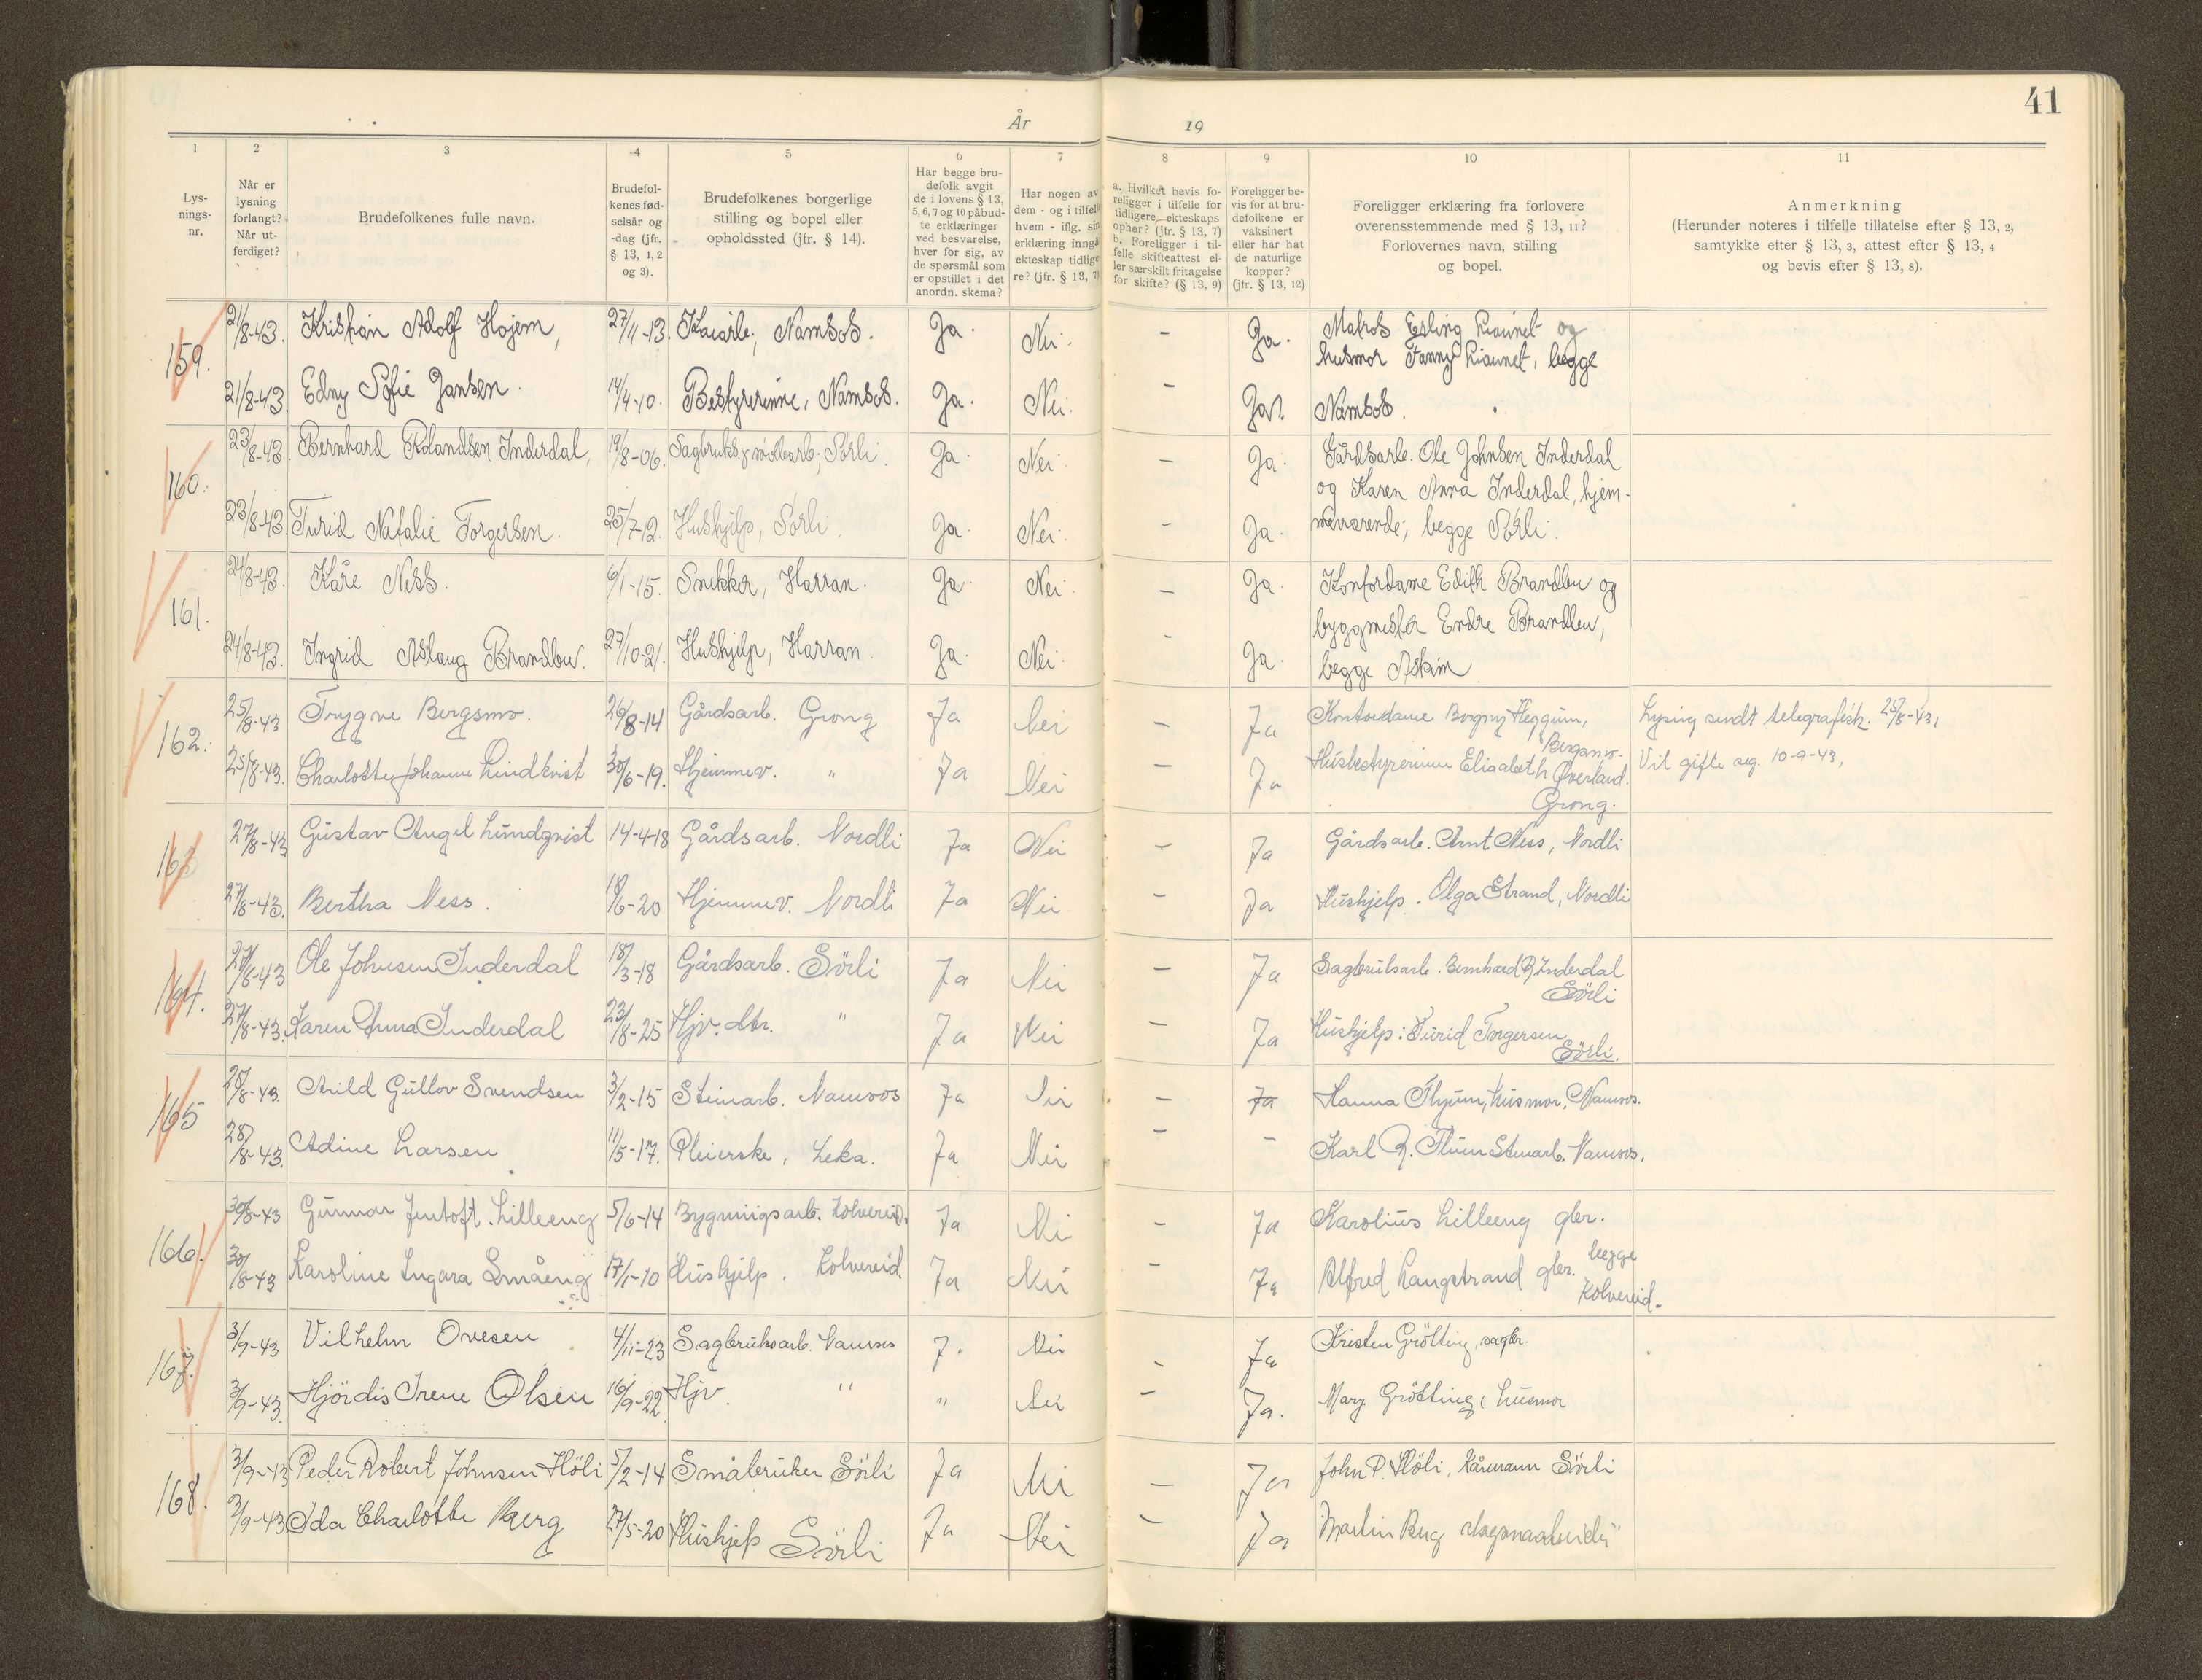 41
År 19
1 2 3 4 5 6 7 8 9 10 11
Lys-
nings-
nr.
Når er
lysning
forlangt?
Når ut-
ferdiget?
Brudefolkenes fulle navn.
Brudefol-
kenes fød-
selsår og
-dag (jfr.
§ 13, 1, 2
og 3).
Brudefolkenes borgerlige
stilling og bopel eller
opholdssted (jfr. § 14).
Har begge bru-
defolk avgit
de i lovens § 13,
5, 6, 7 og 10 påbud-
te erklæringer
ved besvarelse,
hver for sig, av
de spørsmål som
er opstillet i det
anordn. skema?
Har nogen av
dem - og i tilfelle
hvem - iflg. sin
erklæring inngå
ekteskap tidlige
re? (jfr. § 13, 7)
a. Hvilket bevis fo-
religger i tilfelle for
tidligere ekteskaps
ophør? (jfr. § 13, 7)
b. Foreligger i til-
felle skifteattest el-
ler særskilt fritagelse
for skifte? (§ 13, 9)
Foreligger be-
vis for at bru-
defolkene er
vaksinert
eller har hat
de naturlige
kopper?
(jfr. § 13, 12)
Foreligger erklæring fra forlovere
overensstemmende med § 13, 11?
Forlovernes navn, stilling
og bopel.
Anmerkning
(Herunder noteres i tilfelle tillatelse efter § 13, 2,
samtykke efter § 13, 3, attest efter § 13, 4
og bevis efter § 13, 8).
159. 21/8-43. Kristian Adolf Hojem, 27/11-13. Kaiarb., Namsos. Ja. Nei. - Ja. Matros Esling Liaunet og
husmor Fanny Liaunet, begge
21/8-43. Edny Sofie Jansen. 14/4-10. Bestyrerinne, Namsos. Ja. Nei. - Ja. Namsos.
160. 23/8-43. Bernhard Rolandsen Inderdal, 19/8-06. Sagbruks- og møllearb., Sørli. Ja. Nei. - Ja. Gårdsarb. Ole Johnsen Inderdal
og Karen Anna Inderdal, hjem-
23/8-43. Turid Natalie Torgersen. 25/7-12. Hushjelp, Sørli. Ja. Nei. - Ja. meværende, begge Sørli.
161. 24/8-43. Kåre Ness. 6/1-15. Snekker, Harran. Ja. Nei. - Ja. Kontordame Edith Brandbu og
byggmester Endre Brandbu,
24/8-43. Ingrid Aslaug Brandbu. 27/10-21. Hushjelp, Harran. Ja. Nei. - Ja. begge Askim
162. 25/8-43 Trygve Bergsmo. 26/8-14 Gårdsarb. Grong Ja Nei - Ja Kontordame Borgny Heggum, Lysing sendt telegrafisk. 25/8-43,
Bergsmo.
25/8-43. Charlotte Johanne Lindkvist 30/6-19. Hjemmev. " Ja Nei - Ja Husbestyrerinne Elisabeth Øverland. Vil gifte seg. 10-9-43,
Grong.
163 27/8-43 Gustav Angel Lundqvist 14-4-18 Gårdsarb. Nordli Ja Nei - Ja Gårdsarb. Arnt Ness, Nordli
27/8-43. Bertha Ness. 18/6-20 Hjemmev. Nordli Ja Nei - Ja Hushjelp. Olga Strand, Nordli
164. 27/8-43 Ole Johnsen Inderdal 18/3-18 Gårdsarb. Sörli Ja Nei - Ja Sagbruksarb. Bernhard R. Inderdal
Sörli
27/8-43. Karen Anna Inderdal 23/8-25 Hjv. dtr. " Ja Nei - Ja Hushjelp: Turid Torgersen
Sörli.
165 28/8-43. Arild Gullov Svendsen 3/2-15 Steinarb. Namsos Ja Nei - Ja Hanna Flyum, husmor, Namsos.
28/8-43. Adine Larsen 11/5-17. Pleierske, Leka. Ja Nei - - Karl R. Flium Steinarb. Namsos.
166. 30/8-43 Gunnar Jentoft. Lilleeng 5/6-14 Bygningsarb. Kolvereid. Ja Nei - Ja Karolius Lilleeng gbr.
begge
30/8-43 Karoline Ingara Småeng 17/1-10 Hushjelp. Kolvereid. Ja Nei - Ja Alfred Langstrand gbr.
Kolvereid.
167. 3/9-43 Vilhelm Ovesen 4/11-23 Sagbruksarb. Namsos J. Nei - Ja Kristen Grötting, sagbr.
3/9-43. Hjördis Irene Olsen 16/9-22 Hjv. " " Nei - Ja. Mary Grötting, husmor
168. 3/9-43 Peder Robert Johnsen Höli 5/2-14 Småbruker Sörli Ja Nei - Ja John P. Höli, kårmann Sörli
3/9-43 Oda Charlotte Berg 27/5-20 Hushjelp Sörli Ja Nei - Ja Martin Berg